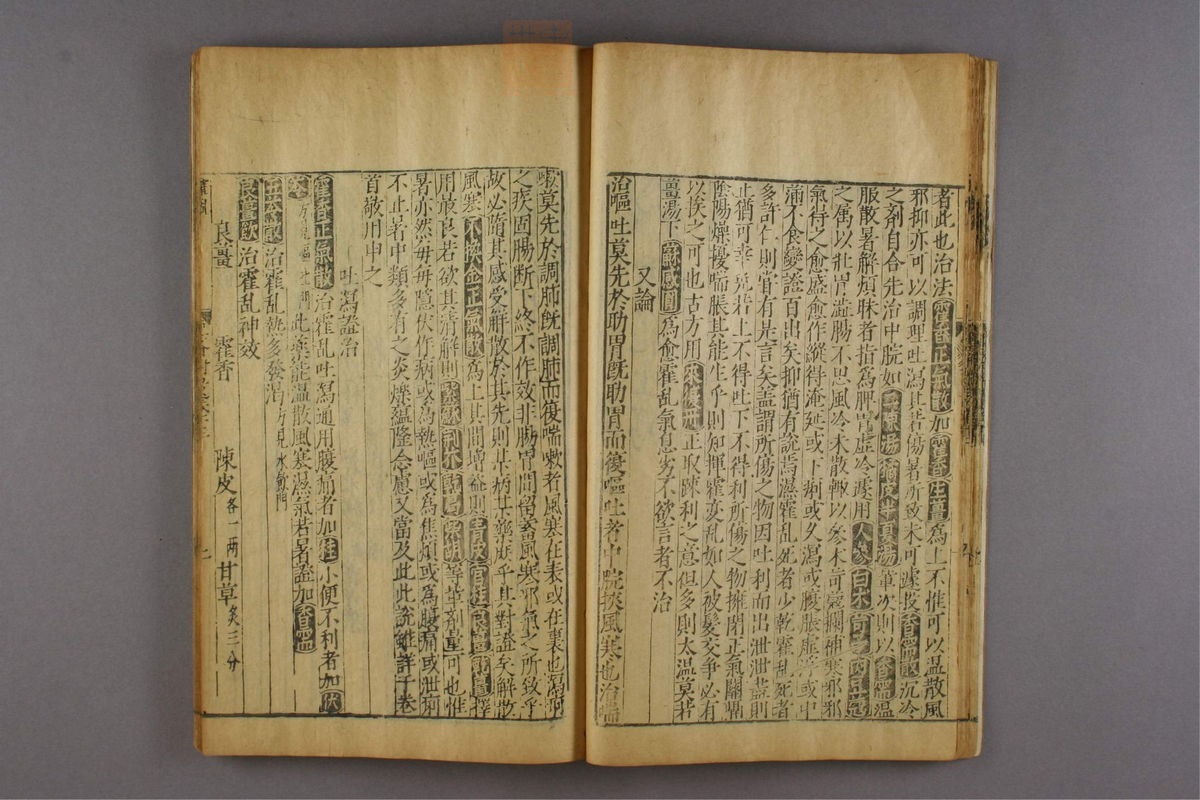 者此也治法藿香正氣散加藿香生薑為上不惟可以温散風
邪抑亦可以調理吐瀉其若傷暑所致未可遽投香薷散沉冷
之剤自合先治中脘如縮脾湯橘皮半夏湯軰次則以香薷温
服散暑解煩昧者指爲脾胃虚冷遽用人參白术訶子肉豆蔻
之属以壯胃澁腸不思風冷未散輙以參术訶蔻攔神塞邪邪
氣得之愈盛愈作縱得淹延或下痢或久瀉或腹脹虚浮或中
滿不食變證百出矣抑猶有説焉濕霍乱死者少乾霍乱死者
多許仁則嘗有是言矣盖謂所傷之物因吐利而出泄泄盡則
止猶可幸免若上不得吐下不得利所傷之物擁閉正氣關鬲
陰陽燥擾喘脹其能生乎則知揮霍变乱如人被髮交爭必有
以挨之可也古方用來復丹正取踈利之意但多則太温莫若
薑湯下蘇感圓爲愈霍乱氣息劣不欲言者不治
又論
治嘔吐莫先於助胃既助胃而後嘔吐者中脘挾風寒也治喘
嗽莫先於調肺既調肺而復喘嗽者風寒在表或在裏也瀉痢
之疾固腸斷下終不作效非腸胃間留蓄風寒邪氣之所致乎
故必隨其感受觧散於其先則某病某藥脗乎其對證矣解散
風寒不換金正氣散爲上其間增益則青皮官桂良薑乾薑擇
用最良若欲其清解則紫蘇荊芥乾葛柴胡等軰剤量可也惟
暑亦然每毎隱伏作病或爲熱嘔或爲焦煩或爲腹痛或泄痢
不止暑中類多有之炎爍蘊隆念慮又當及此此説雖詳于卷
首敢用申之
吐瀉證治
藿香正氣散治霍乱吐瀉通用腹痛者加桂小便不利者加茯
苓方見嘔吐門此藥能温散風寒濕氣若暑證加香薷
五苓散治霍乱熱多發渴方見水氣門
良薑飲治霍乱神效
良薑 藿香 陳皮各一兩甘草炙三分